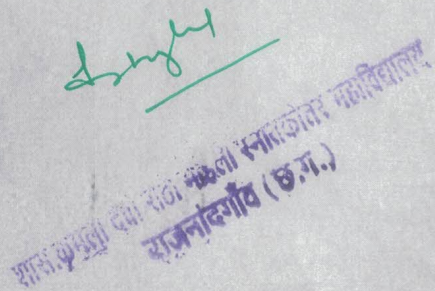 शास. कमला देवी राठी महिला स्नातकोत्तर महाविद्यालय
राजनांदगाँव (छ.ग.)